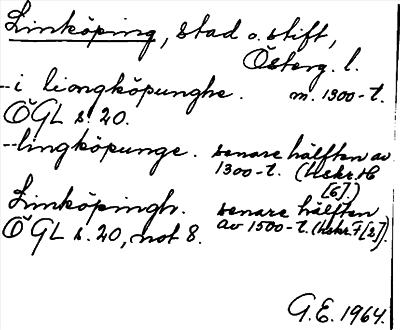 Linköping, stad o. stift,
Österg. l.
--i liongköpunghe. m. 1300-t.
ÖGL s. 20.
--lingköpunge. senare hälften av
1300-t. (Hskr. H
[6].)
Linköpingh. senare hälften
ÖGL s. 20, not 8. av 1500-t. (hskr. F [2]).
G.E. 1964.